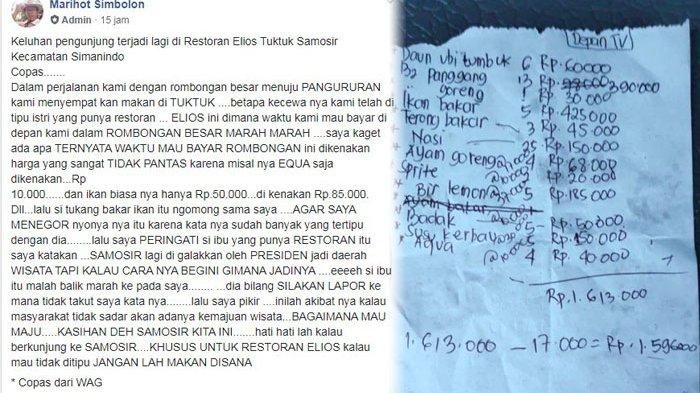 Marihot Simbolon
Admin · 15 jam
Keluhan pengunjung terjadi lagi di Restoran Elios Tuktuk Samosir
Kecamatan Simanindo
Copas.......
Dalam perjalanan kami dengan rombongan besar menuju PANGURURAN
kami menyempat kan makan di TUKTUK ....betapa kecewa nya kami telah di
tipu istri yang punya restoran ... ELIOS ini dimana waktu kami mau bayar di
depan kami dalam ROMBONGAN BESAR MARAH MARAH ....saya kaget
ada apa TERNYATA WAKTU MAU BAYAR ROMBONGAN ini dikenakan
harga yang sangat TIDAK PANTAS karena misal nya EQUA saja
dikenakan...Rp
10.000......dan ikan biasa nya hanya Rp.50,000...di kenakan Rp.85.000.
Dll...lalu si tukang bakar ikan itu ngomong sama saya ....AGAR SAYA
MENEGOR nyonya nya itu karena kata nya sudah banyak yang tertipu
dengan dia........lalu saya PERINGATI si ibu yang punya RESTORAN itu
saya katakan ...SAMOSIR lagi di galakkan oleh PRESIDEN jadi daerah
WISATA TAPI KALAU CARA NYA BEGINI GIMANA JADINYA ....eeeeh si ibu
itu malah balik marah ke pada saya........ ...dia bilang SILAKAN LAPOR ke
mana tidak takut saya kata nya.......lalu saya pikir ....inilah akibat nya kalau
masyarakat tidak sadar akan adanya kemajuan wisata...BAGAIMANA MAU
MAJU.....KASIHAN DEH SAMOSIR KITA INI.......hati hati lah kalau
berkunjung ke SAMOSIR....KHUSUS UNTUK RESTORAN ELIOS kalau
mau tidak ditipu JANGAN LAH MAKAN DISANA
* Copas dari WAG
Depan TV
Daun ubi tumbuk 6 Rp.60000
B2 Panggang 13 Rp. 390000
goreng 1 Rp 30 000
Ikan bakar 5 Rp. 425000
Terong bakar 3 Rp. 45 000
Nasi 25 Rp. 150.000
Ayam goreng 4 Rp. 68.000
Sprite Rp. 20 000
Bir lemon Rp. 185 000
Ayam bakar
Badak 5 Rp. 50,000
Susu kerbau 5 Rp. 150 000
Aqua 4 Rp. 40 000
Rp. 1. 613 000
1. 613.000 – 17.000 = Rp. 1. 596000